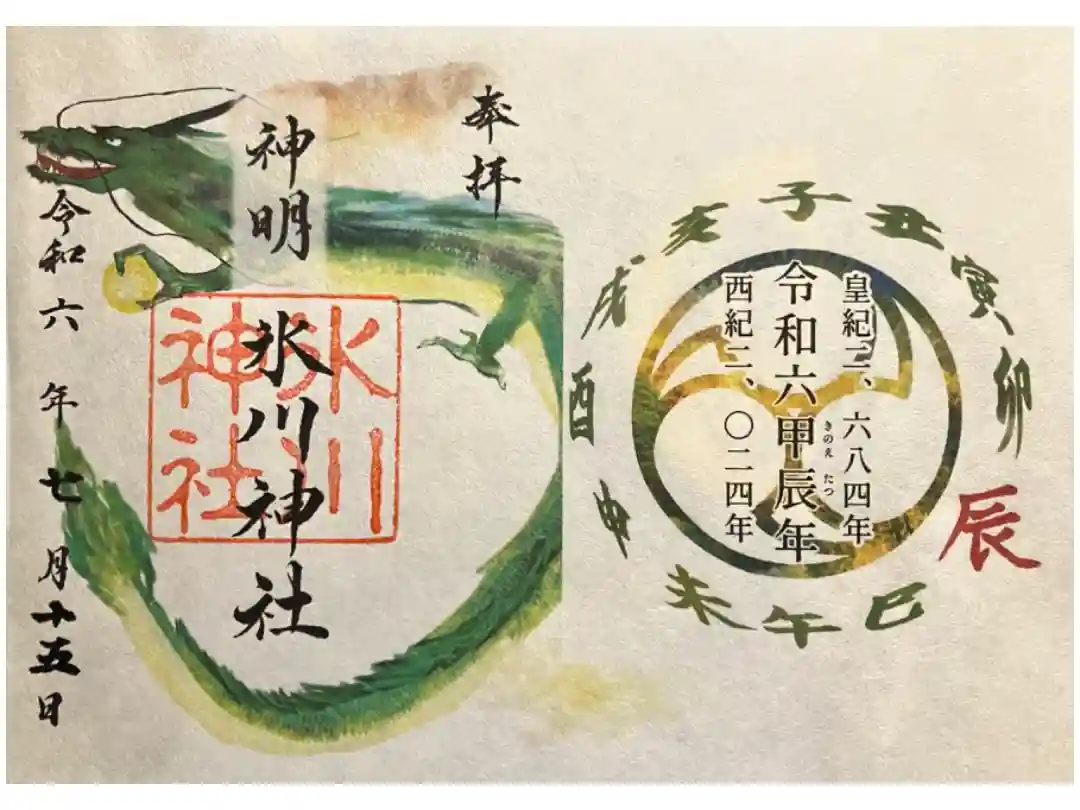 奉拝
神明
氷川神社
氷川
神社
令和六年七月十五日
子
丑
寅
卯
辰
巳
午
未
申
酉
戌
亥
皇紀二、六八四年
令和六甲辰年
きのえ たつ
西紀二、〇二四年